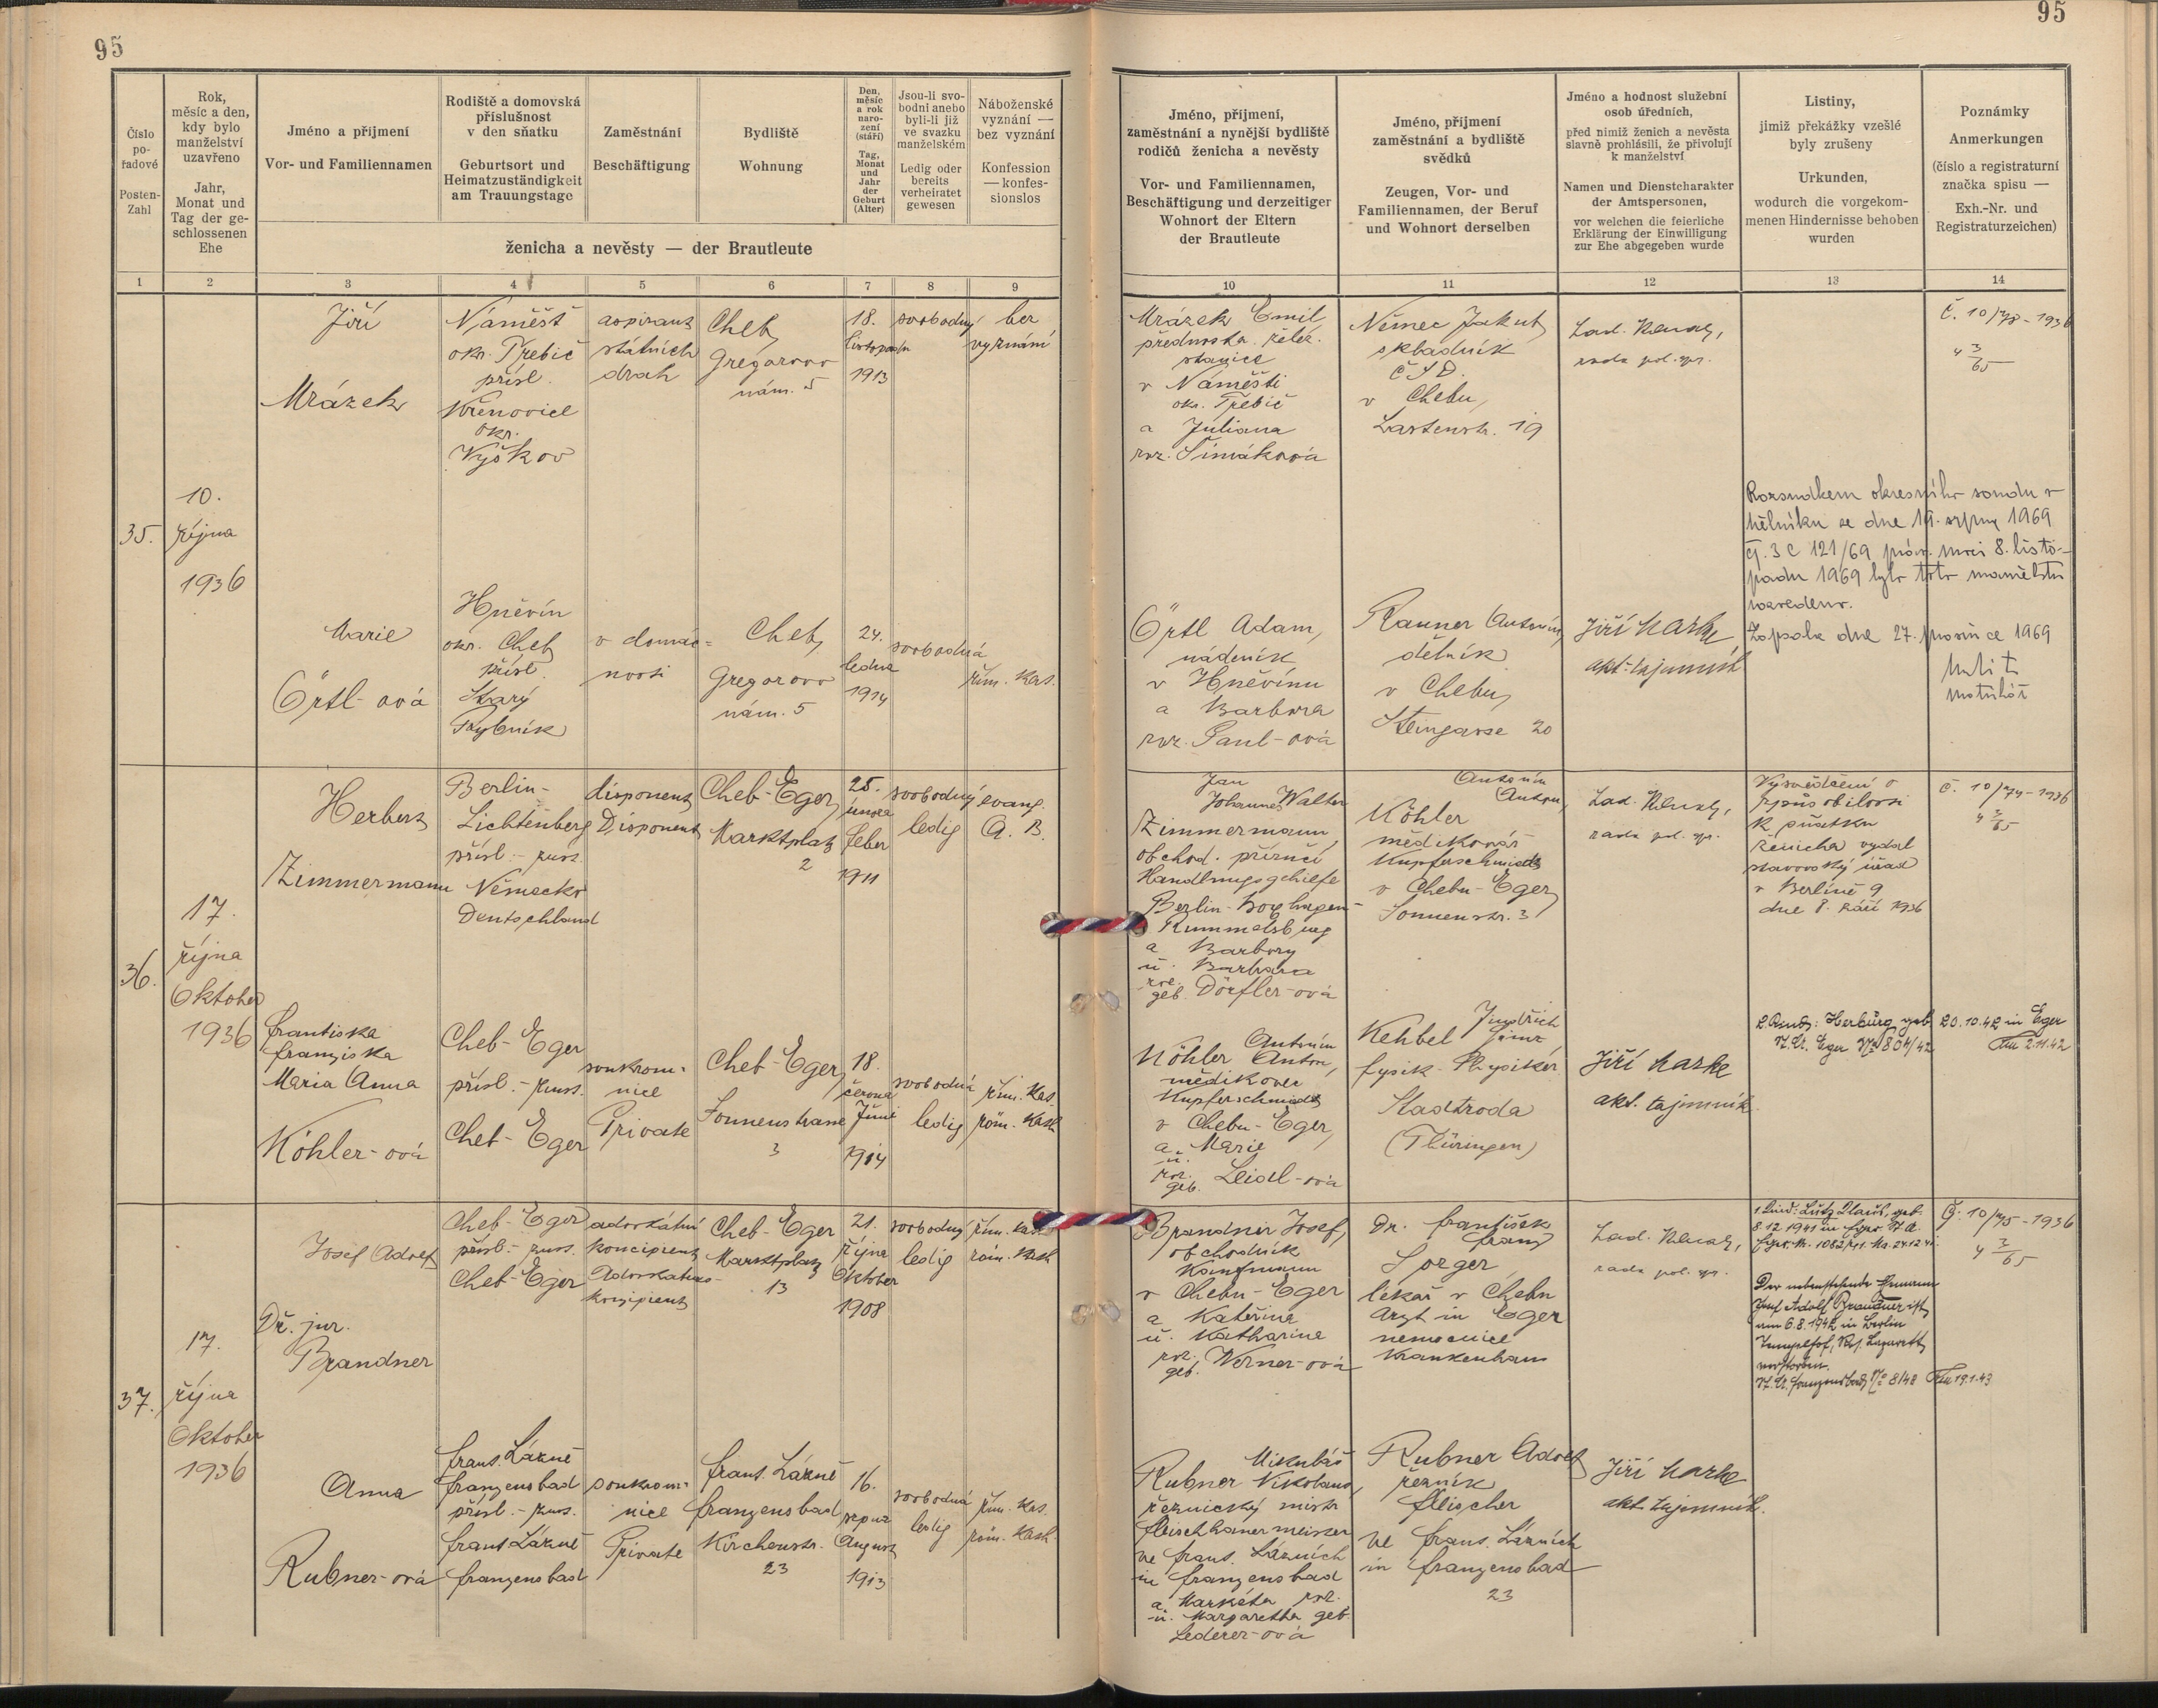 95
95
Číslo
po-
řadové
Posten-
Zahl
Rok,
měsíc a den,
kdy bylo
manželství
uzavřeno
Jahr,
Monat und
Tag der ge-
schlossenen
Ehe
Jméno a příjmení
Vor- und Familiennamen
Rodiště a domovská
příslušnost
v den sňatku
Geburtsort und
Heimatzuständigkeit
am Trauungstage
Zaměstnání
Beschäftigung
Bydliště
Wohnung
Den,
měsíc
a rok
naro-
zení
(stáří)
Tag,
Monat
und
Jahr
der
Geburt
(Alter)
Jsou-li svo-
bodni anebo
byli-li již
ve svazku
manželském
Ledig oder
bereits
verheiratet
gewesen
Náboženské
vyznání —
bez vyznání
Konfession
— konfes-
sionslos
ženicha a nevěsty — der Brautleute
Jméno, příjmení,
zaměstnání a nynější bydliště
rodičů ženicha a nevěsty
Vor- und Familiennamen,
Beschäftigung und derzeitiger
Wohnort der Eltern
der Brautleute
Jméno, příjmení
zaměstnání a bydliště
svědků
Zeugen, Vor- und
Familiennamen, der Beruf
und Wohnort derselben
Jméno a hodnost služební
osob úředních,
před nimiž ženich a nevěsta
slavně prohlásili, že přivolují
k manželství
Namen und Dienstcharakter
der Amtspersonen,
vor welchen die feierliche
Erklärung der Einwilligung
zur Ehe abgegeben wurde
Listiny,
jimiž překážky vzešlé
byly zrušeny
Urkunden,
wodurch die vorgekom-
menen Hindernisse behoben
wurden
Poznámky
Anmerkungen
(číslo a registraturní
značka spisu —
Exh.-Nr. und
Registraturzeichen)
1 2 3 4 5 6 7 8 9 10 11 12 13 14
35.
10.
října
1936
Jiří
Mrázek
Náměšť
okr. Třebíč
přísl.
Křenovice
okr.
Vyškov
aspirant
státních
drah
Cheb,
Gregorovo
nám. 5
18.
listopadu
1913
svobodný
bez
vyznání
Mrázek Emil,
přednosta želez.
stanice
v Náměšti
okr. Třebíč
a Juliana
roz. Šimáková
Němec Jakub,
skladník
ČSD.
v Chebu,
Lartenstr. 19
Lad.
rada pol. spr.
Č. 10/78-1936
4 3/65
Rozsudkem okresního soudu v
Mělníku ze dne 19. srpna 1969
čj. 3 C 121/69 práv. moci 8. listo-
padu 1969 bylo toto manželství
rozvedeno.
Zapsala dne 27. prosince 1969
matrikář
Marie
Örtl-ová
Hněvín
okr. Cheb
přísl.
Starý
Rybník
v domác-
nosti
Cheb,
Gregorovo
nám. 5
24.
ledna
1914
svobodná
řím. kat.
Örtl Adam,
nádeník
v Hněvínu
a Barbora
roz. Paul-ová
Ranner Antonín,
dělník
v Chebu,
Steingasse 20
Jiří Marke
akt. tajemník
36.
17.
října
Oktober
1936
Herbert
Zimmermann
Berlin-
Lichtenberg
přísl.-zust.
Německo
Deutschland
disponent
Disponent
Cheb-Eger,
Marktplatz
2
25.
února
Feber
1911
svobodný
ledig
evang.
A. B.
Jan
Johannes Walter
Zimmermann,
obchod. příručí
Handlungsgehilfe
Berlin-Boxhagen-
Rummelsburg
a Barbory
u. Barbara
roz.
geb. Dörfler-ová
Antonín
Anton,
Köhler
mědikovář
Kupferschmied
v Chebu-Eger,
Sonnenstr. 3
Lad.
rada pol. spr.
Vysvědčení o
způsobilosti
k sňatku
ženicha vydal
stavovský úřad
v Berlíně 9
dne 8. září 1936
Č. 10/74-1936
4 3/65
Františka
Franziska
Maria Anna
Köhler-ová
Cheb-Eger
přísl.-zust.
Cheb-Eger
soukrom-
nice
Private
Cheb-Eger,
Sonnenstrasse
3
18.
června
Juni
1914
svobodná
ledig
řím. kat.
röm. kath
Antonín
Köhler Anton,
mědikovec
Kupferschmied
v Chebu-Eger,
a Marie
u.
roz.
geb. Leidl-ová
Jindřich
Kehbel Heinz
fysik-Physiker
Stadtroda
(Thüringen)
Jiří Marke
akt. tajemník
2. Kind: Herburg geb. 20.10.42 in Eger
St. A. Eger № 804/42 2.11.42
37.
17.
října
Oktober
1936
Josef Adolf
Dr. jur.
Brandner
Cheb-Eger
přísl.-zust.
Cheb-Eger
advokátní
koncipient
Advokaturs-
konzipient
Cheb-Eger
Marktplatz
13
21.
října
Oktober
1908
svobodný
ledig
řím. kat.
röm. kath
Brandner Josef,
obchodník
Kaufmann
v Chebu-Eger
a Kateřina
u. Katharine
roz.
geb. Werner-ová
Dr. František
Franz
Sorger,
lékař v Chebu
Arzt in Eger
nemocnice
Krankenhaus
Lad.
rada pol. spr.
1. Kind: Lutz Klaus, geb.
8.12.1941 in Eger. St. A.
Eger. Nr. 1082/41.
Der nebenstehende Ehemann
Josef Adolf Brandner ist
am 6.8.1942 in Berlin
Tempelhof, Res. Lazarett
verstorben.
St. A. Franzensbad № 8/43 19.1.43
Č. 10/75-1936
4 3/65
Anna
Rubner-ová
Frant. Lázně
Franzensbad
přísl.-zust.
Frant. Lázně
Franzensbad
soukrom-
nice
Private
Frant. Lázně
Franzensbad
Kirchenstr.
23
16.
srpna
August
1913
svobodná
ledig
řím. kat.
röm. kath
Mikuláš
Rubner Nikolaus,
řeznický mistr
Fleischhauermeister
ve Frant. Lázních
in Franzensbad
a Markéta roz.
u. Margaretha geb.
Lederer-ová
Rubner Adolf
řezník
Fleischer
ve Frant. Lázních
in Franzensbad
23
Jiří Marke
akt. tajemník.